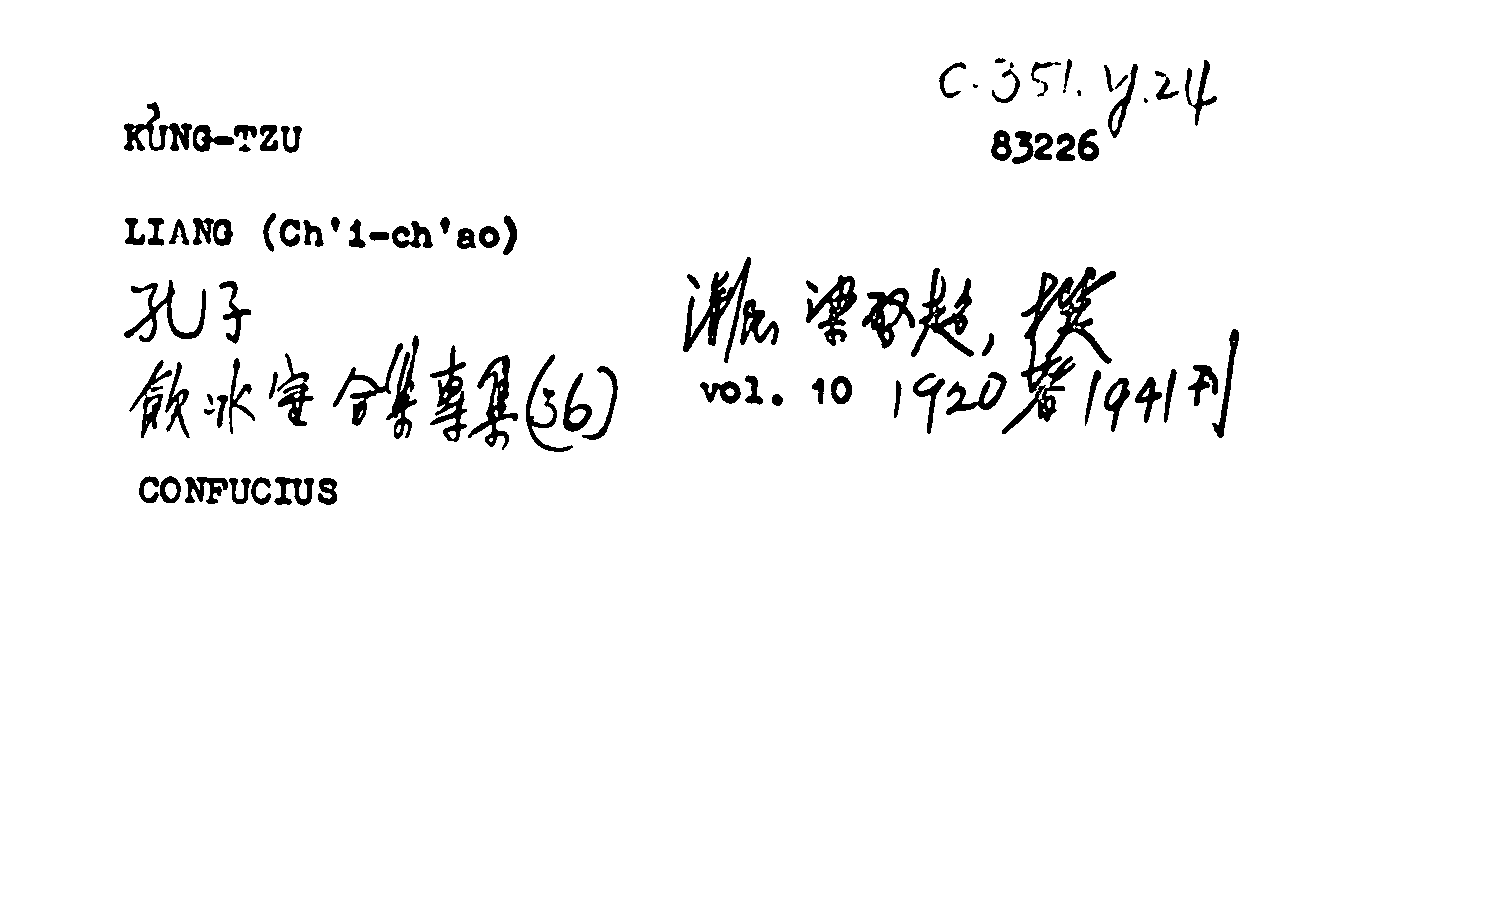 C.351.y.24
KỦNG-TZU 83226
LIANG (Ch'i-ch'ao)
孔子 清/民 梁啟超, 撰
飲冰室合集專集(36) vol. 10 1920著1941刊
CONFUCIUS